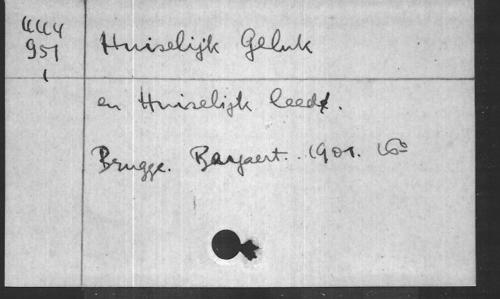 444
951
1
Huiselijk Geluk
en Huiselijk leed.
Brugge. Bayaert. 1901. 16°